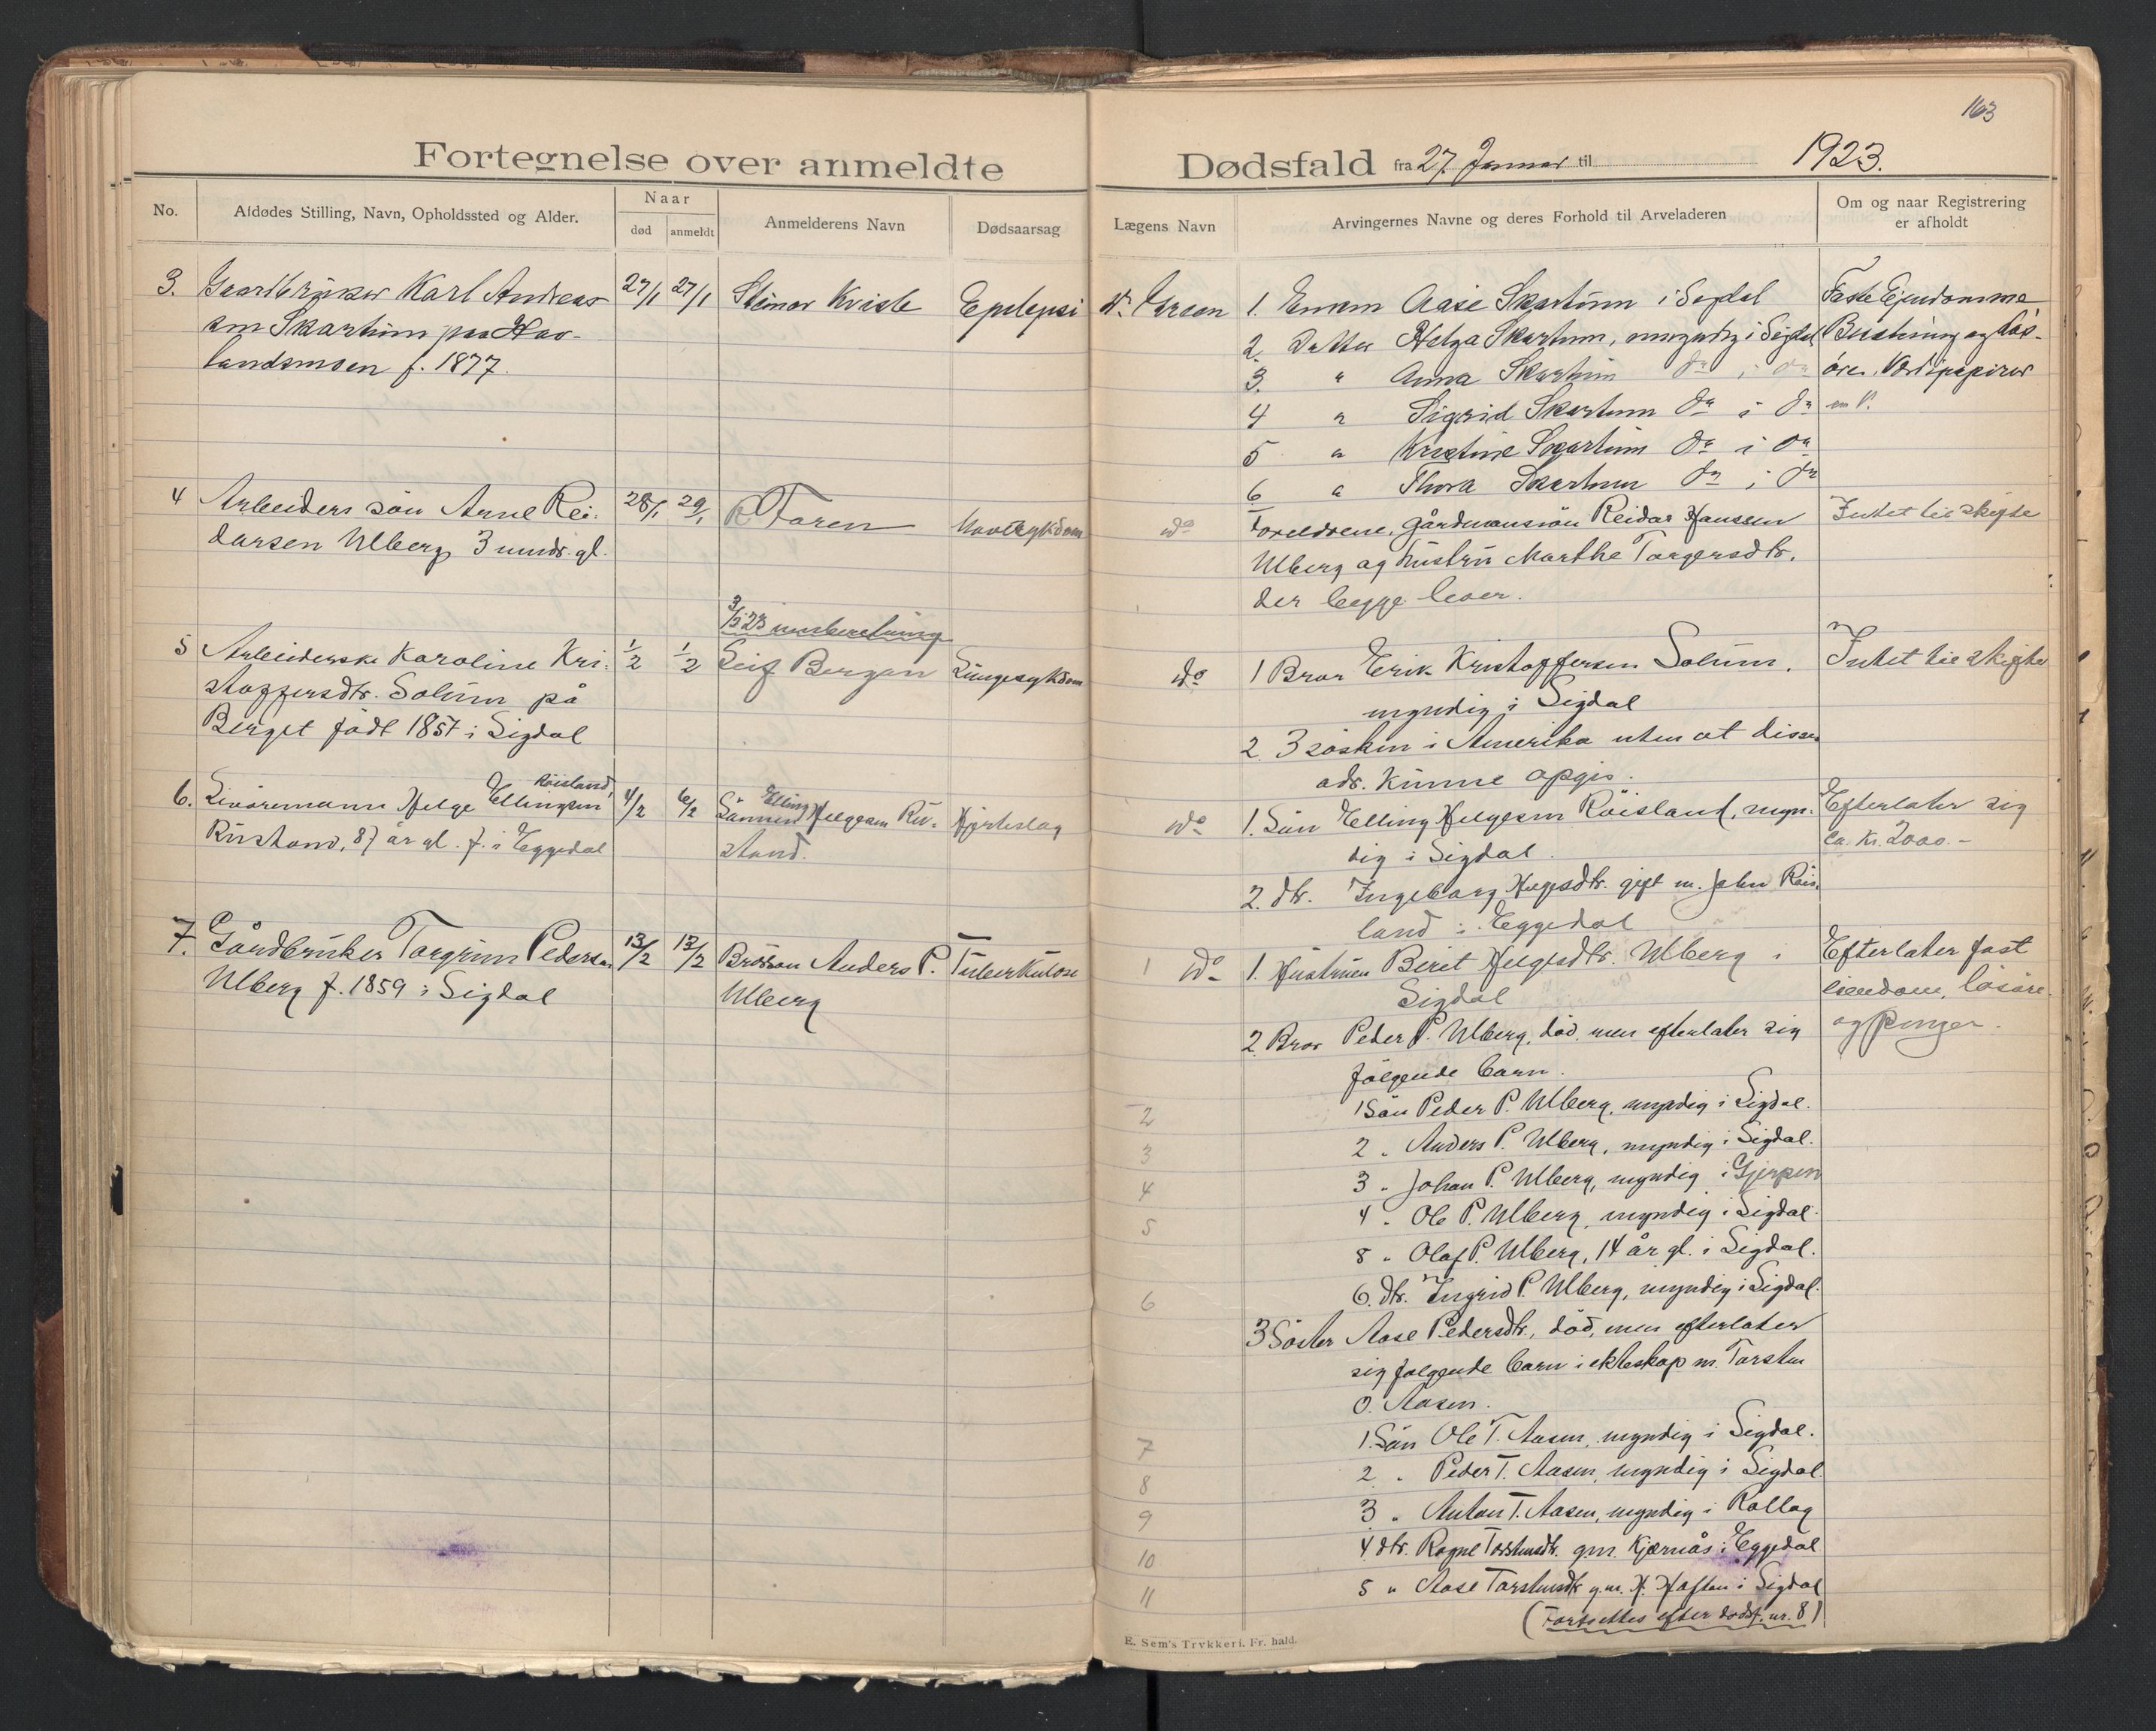 163
Fortegnelse over anmeldte Dødsfald fra 27. Januar til 1923.
No.
Afdødes Stilling, Navn, Opholdssted og Alder.
Naar
død
anmeldt
Anmelderens Navn
Dødsaarsag
Lægens Navn
Arvingernes Navne og deres Forhold til Arveladeren
Om og naar Registrering
er afholdt
3. Gaardbruker Karl Andreas
Skartum paa Hav-
landsmoen f. 1877.
27/1 27/1
Steinar Kvisle
Epilepsi
1. Enken Aase Skartum i Sigdal
2. Datter Helga Skartum, umyndig i Sigdal
3. " Anna Skartum do i do
4 " Sigrid Skartum do i do
5 " Kristine Skartum do i do
6 " Thora Skartum do i do
Faste Ejendomme
Besetning og løs-
øre. Værdipapirer
m. v.
4 Arbeiders søn Arne Rei-
darsen Ulberg 3 mndr. gl.
28/1 29/1
Faren
do
Foreldrene, gårdmansøn Reidar Hanssen
Ulberg og hustru Marthe Torgersdtr.
der begge lever.
Intet til skifte
3/2 23 innberetning
5 Arbeiderske Karoline Kri-
stoffersdtr. Solum på
Berget født 1857 i Sigdal
1/2 1/2
Leif Bergan
Lungesykdom
do
1 Bror Erik Kristoffersen Solum,
myndig i Sigdal
2 3 søsken i Amerika uten at disses
adr. kunne opgis.
Intet til skifte
6. Livøremann Helge Ellingsen Røisland,
Rustand, 87 år gl. f. i Eggedal
4/2 6/2
Sønnen Elling Helgesen Ru-
stand.
Hjerteslag
do
1. Søn Elling Helgesen Røisland, myn-
dig i Sigdal.
2. dtr. Ingeborg Helgesdtr. gift m. John Røis-
land i Eggedal
Efterlater sig
ca. kr. 2000.-
7. Gårdbruker Torgrim Pedersen
Ulberg f. 1859 i Sigdal
13/2 13/2
Brorsøn Anders P.
Ulberg
Tuberkulose
1 do
1. Hustruen Birit Helgesdtr. Ulberg i
Sigdal
2. Bror Peder P. Ulberg, død, men efterlater sig
følgende barn.
2 1 Søn Peder P. Ulberg, myndig i Sigdal.
3 2 " Anders P. Ulberg, myndig i Sigdal.
4 3 " Johan P. Ulberg, myndig i Gjerpen
5 4 " Ole P. Ulberg, myndig i Sigdal.
5 " Olaf P. Ulberg, 14 år gl. i Sigdal.
6 6. dtr. Ingrid P. Ulberg, myndig i Sigdal.
3 Søster Aase Pedersdtr., død, men efterlater
sig følgende barn i ekteskap m. Torsten
O. Aasen.
7 1. Søn Ole T. Aasen, myndig i Sigdal.
8 2 " Peder T. Aasen, myndig i Sigdal.
9 3 " Anton T. Aasen, myndig i Rollag
10 4 dtr. Ragne Torstensdtr. g.m. Kjærnås i Eggedal
11 5 " Aase Torstensdtr. g.m. H. Haftun i Sigdal
(Fortsettes efter dødsf. nr. 8)
Efterlater fast
eiendom, løsøre
og penger.
E. Sem's Trykkeri, Fr. hald.